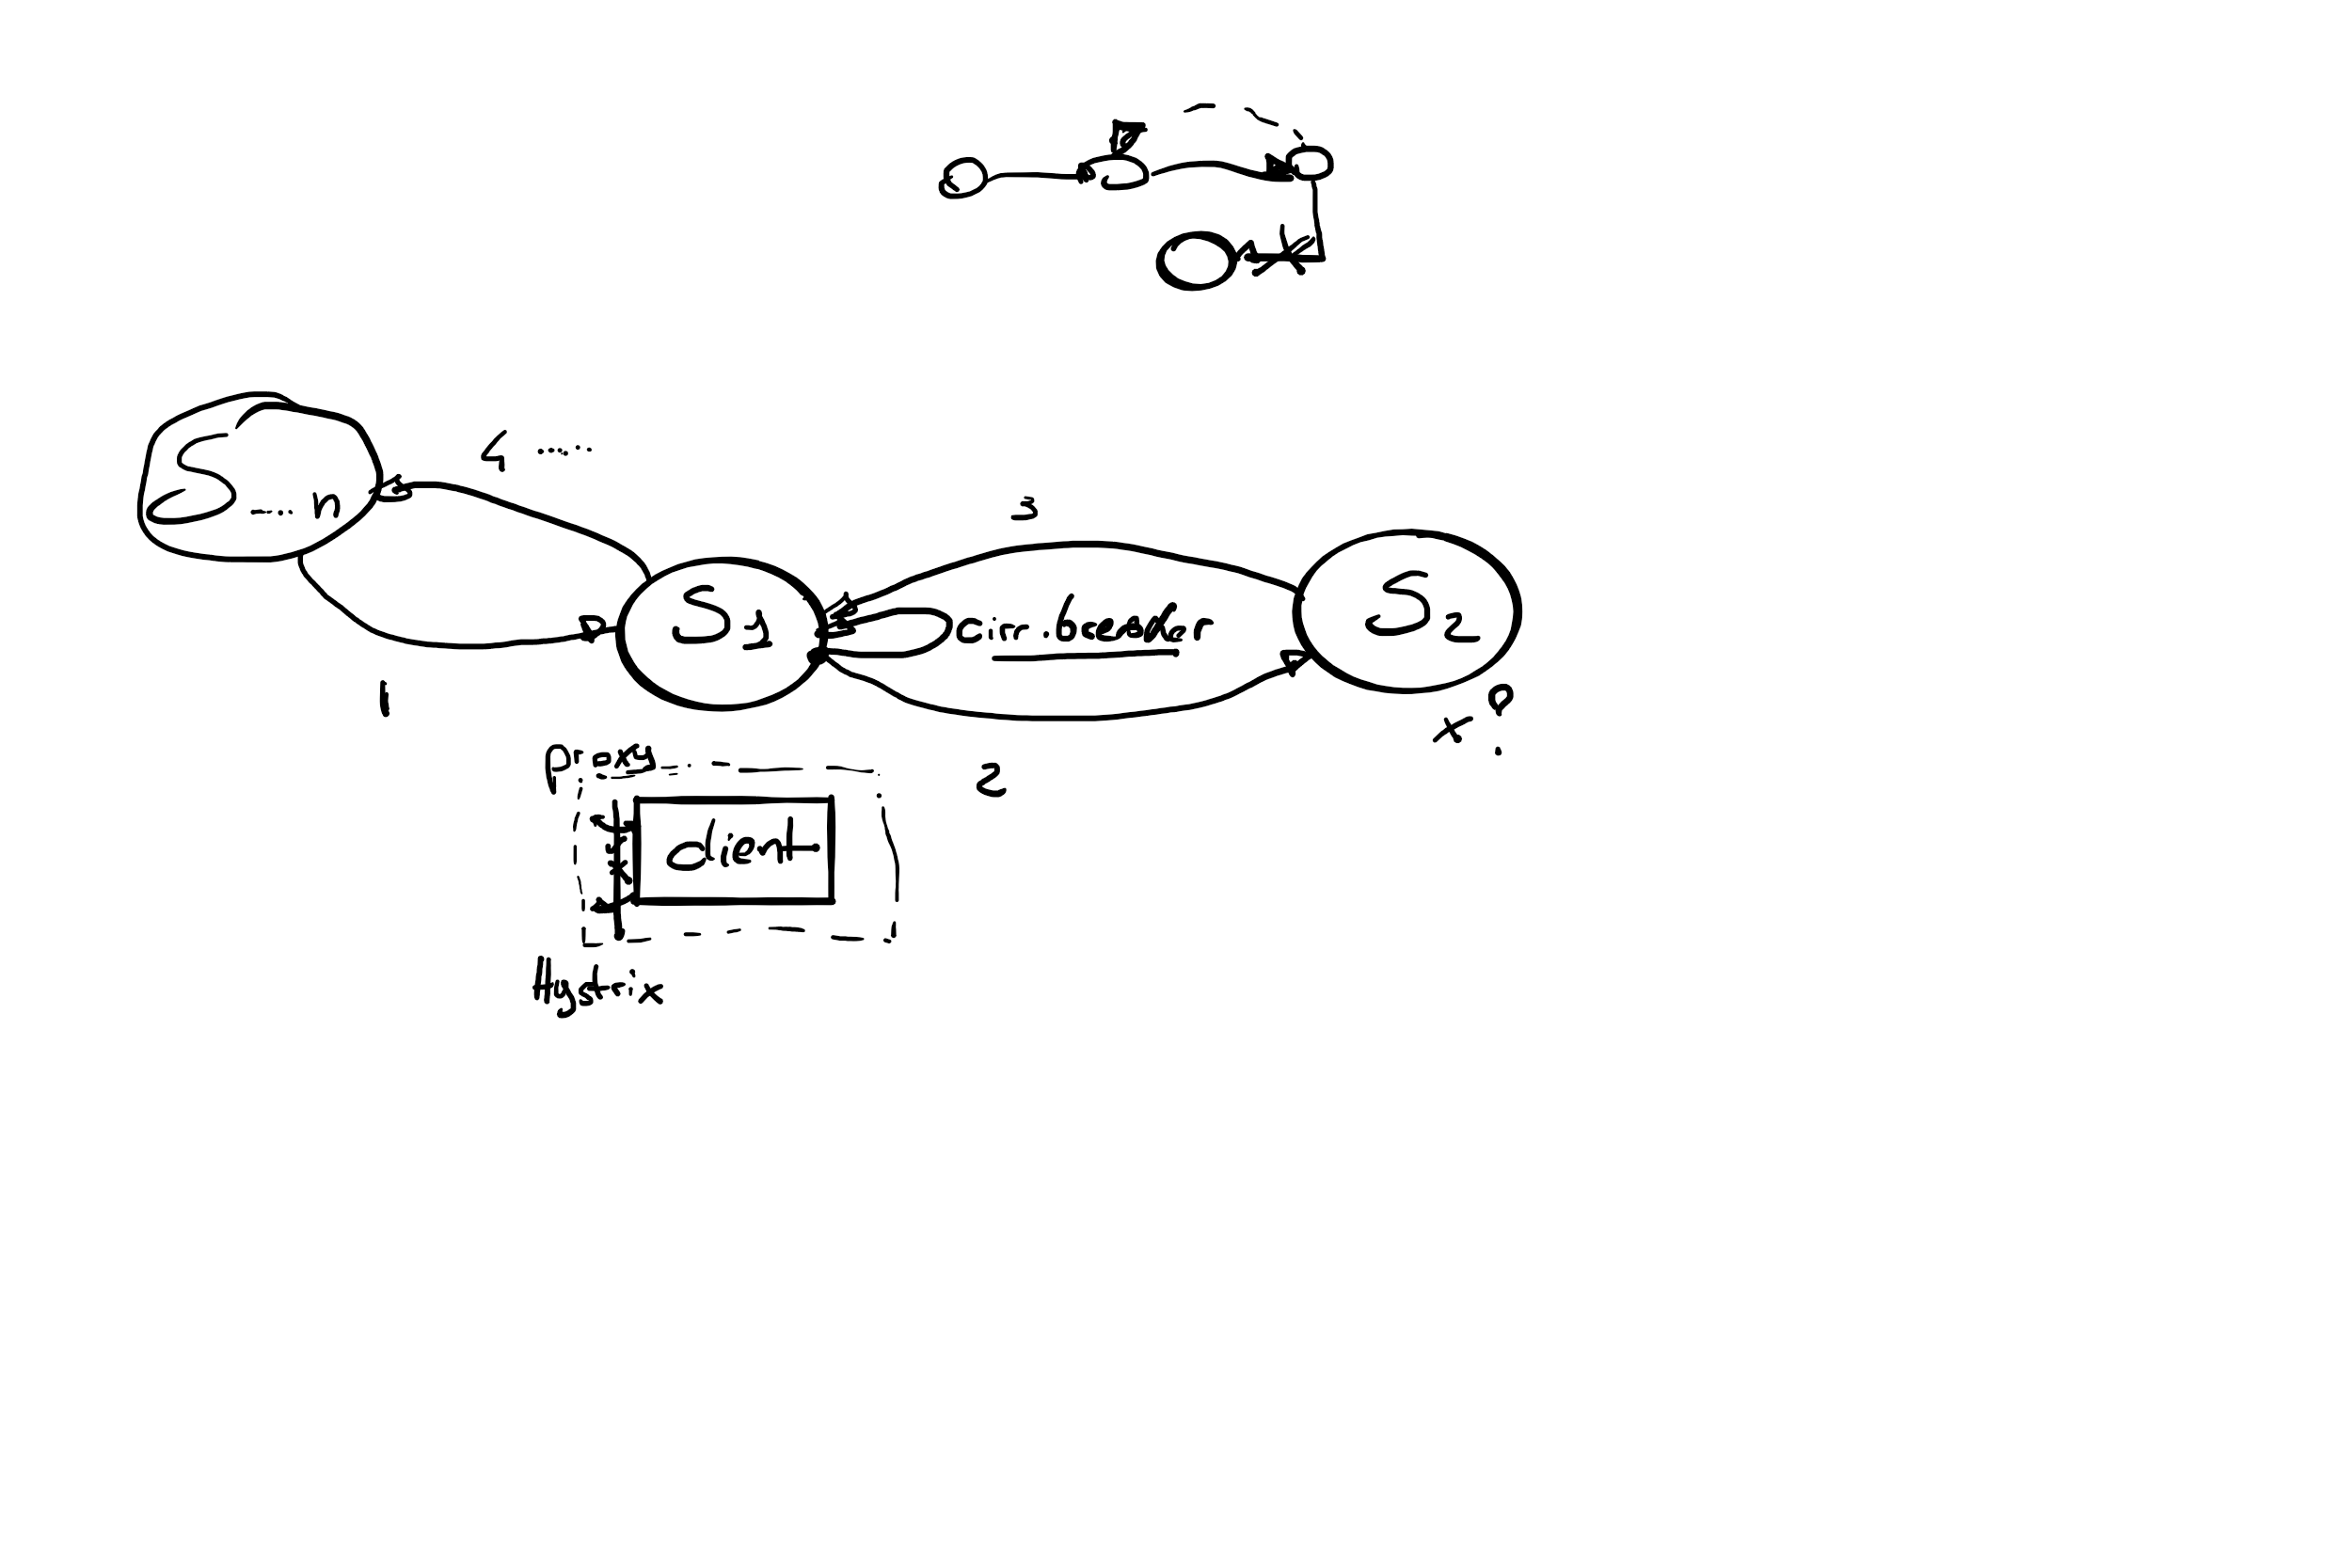 4 .....
S ....n
3
S1
cir.breaker
S2
1
x ?
proxy
2
client
Hystrix